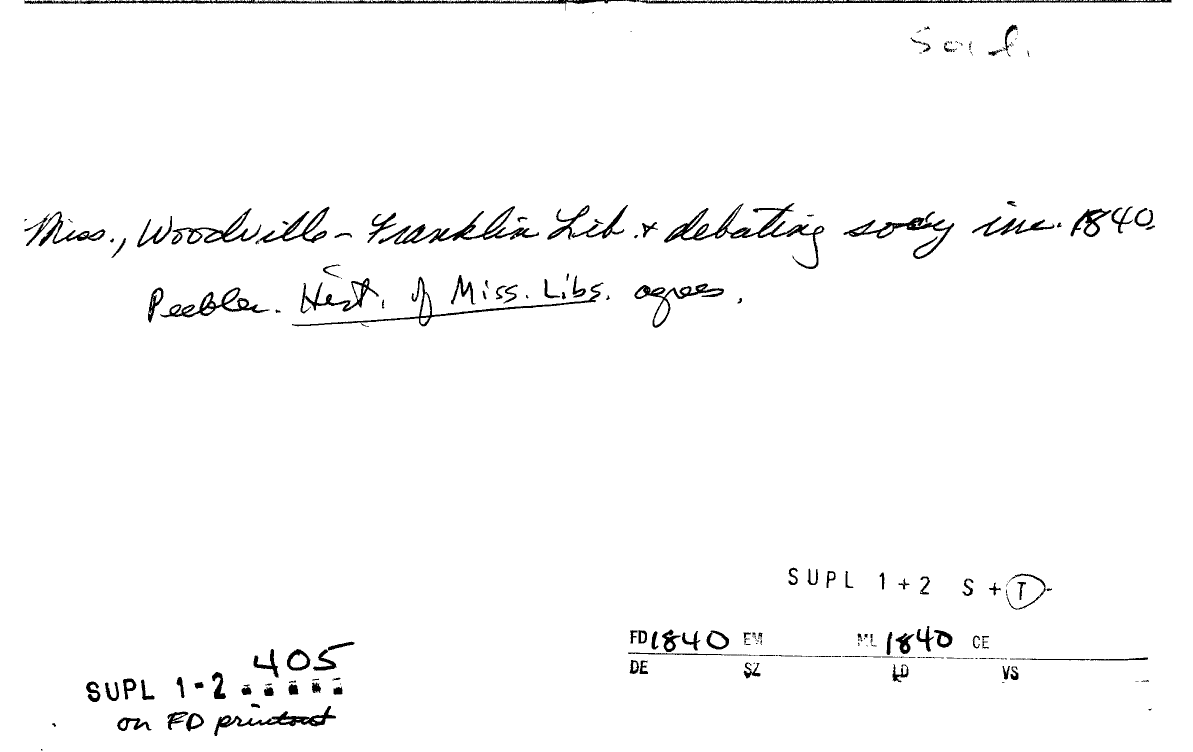 Socl.
Miss., Woodville - Franklin Lib. & debating socy inc. 1840.
Peebles. Hist. of Miss. Libs. agrees.
SUPL 1+2 S+T
FD 1840 EM ML 1840 CE
DE SZ LD VS
405
SUPL 1-2
on FD printout